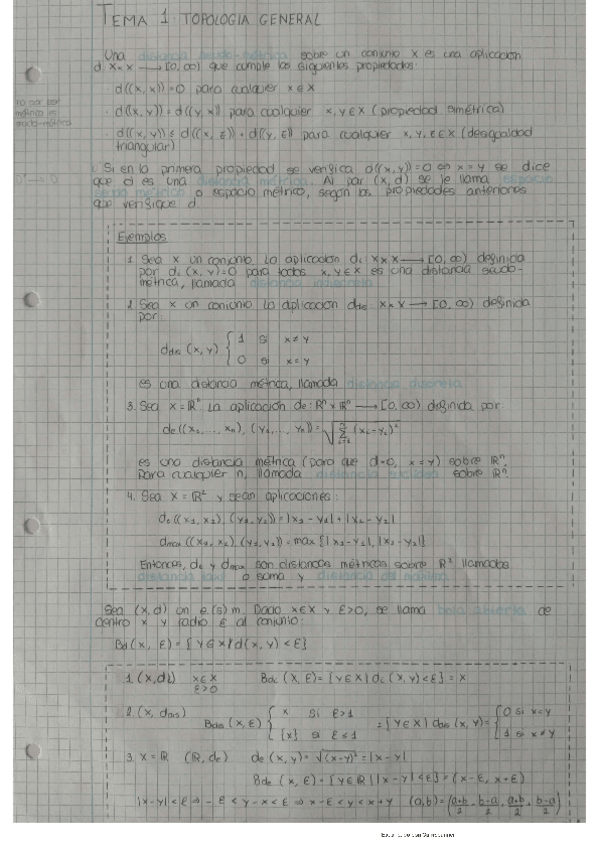 TEMA 1: TOPOLOGÍA GENERAL
Una distancia seudo-métrica sobre un conjunto X es una aplicación
d: X×X → [0,∞) que cumple las siguientes propiedades:
· d((x,x))=0 para cualquier x∈X
· d((x,y))=d((y,x)) para cualquier x,y∈X (propiedad simétrica)
· d((x,y)) ≤ d((x,z))+d((y,z)) para cualquier x,y,z∈X (desigualdad
triangular)
Si en la primera propiedad se verifica d((x,y))=0 ⇔ x=y se dice
que d es una distancia métrica. Al par (x,d) se le llama espacio
métrico o espacio métrico, según las propiedades anteriores
que verifique d.
Ejemplos
1. Sea X un conjunto. La aplicación di: X×X → [0,∞) definida
por di(x,y)=0 para todos x,y∈X es una distancia seudo-
métrica, llamada distancia indiscreta
2. Sea X un conjunto. La aplicación ddis: X×X → [0,∞) definida
por:
ddis(x,y) { 1 si x≠y
0 si x=y
es una distancia métrica, llamada distancia discreta
3. Sea X=ℝⁿ. La aplicación de: ℝⁿ×ℝⁿ → [0,∞) definida por:
de((x₁,...,xₙ),(y₁,...,yₙ))=√Σ(xᵢ-yᵢ)²
es una distancia métrica (para que d=0, x=y) sobre ℝⁿ.
Para cualquier n, llamada distancia euclídea sobre ℝⁿ
4. Sea X=ℝ² y sean aplicaciones:
((x₁,x₂),(y₁,y₂))=|x₁-y₁|+|x₂-y₂|
dmax((x₁,x₂),(y₁,y₂))=max{|x₁-y₁|,|x₂-y₂|}
Entonces, y dmax son distancias métricas sobre ℝ² llamadas
distancia taxi o suma y distancia del máximo
Sea (x,d) un e.(s)m. Dado x∈X y ε>0, se llama bola abierta de
centro x y radio ε al conjunto:
Bd(x,ε)={y∈X/d(x,y)<ε}
1. (x,di) x∈X Bdi(x,ε)={y∈X|di(x,y)<ε}=X
ε>0
2. (x,ddis) Bddis(x,ε) { x si ε>1 ={y∈X| ddis(x,y)= { 0 si x=y
{x} si ε≤1 1 si x≠y
3. X=ℝ (ℝ,de) de(x,y)=√(x-y)²=|x-y|
Bde(x,ε)={y∈ℝ||x-y|<ε}=(x-ε,x+ε)
|x-y|<ε ⇒ -ε<y-x<ε ⇒ x-ε<y<x+ε (a,b)=(a+b/2 - b-a/2, a+b/2 + b-a/2)